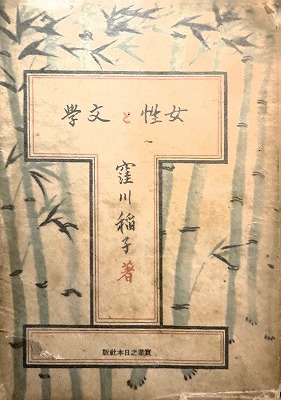 女性と文學
窪川稲子著
實業之日本社版